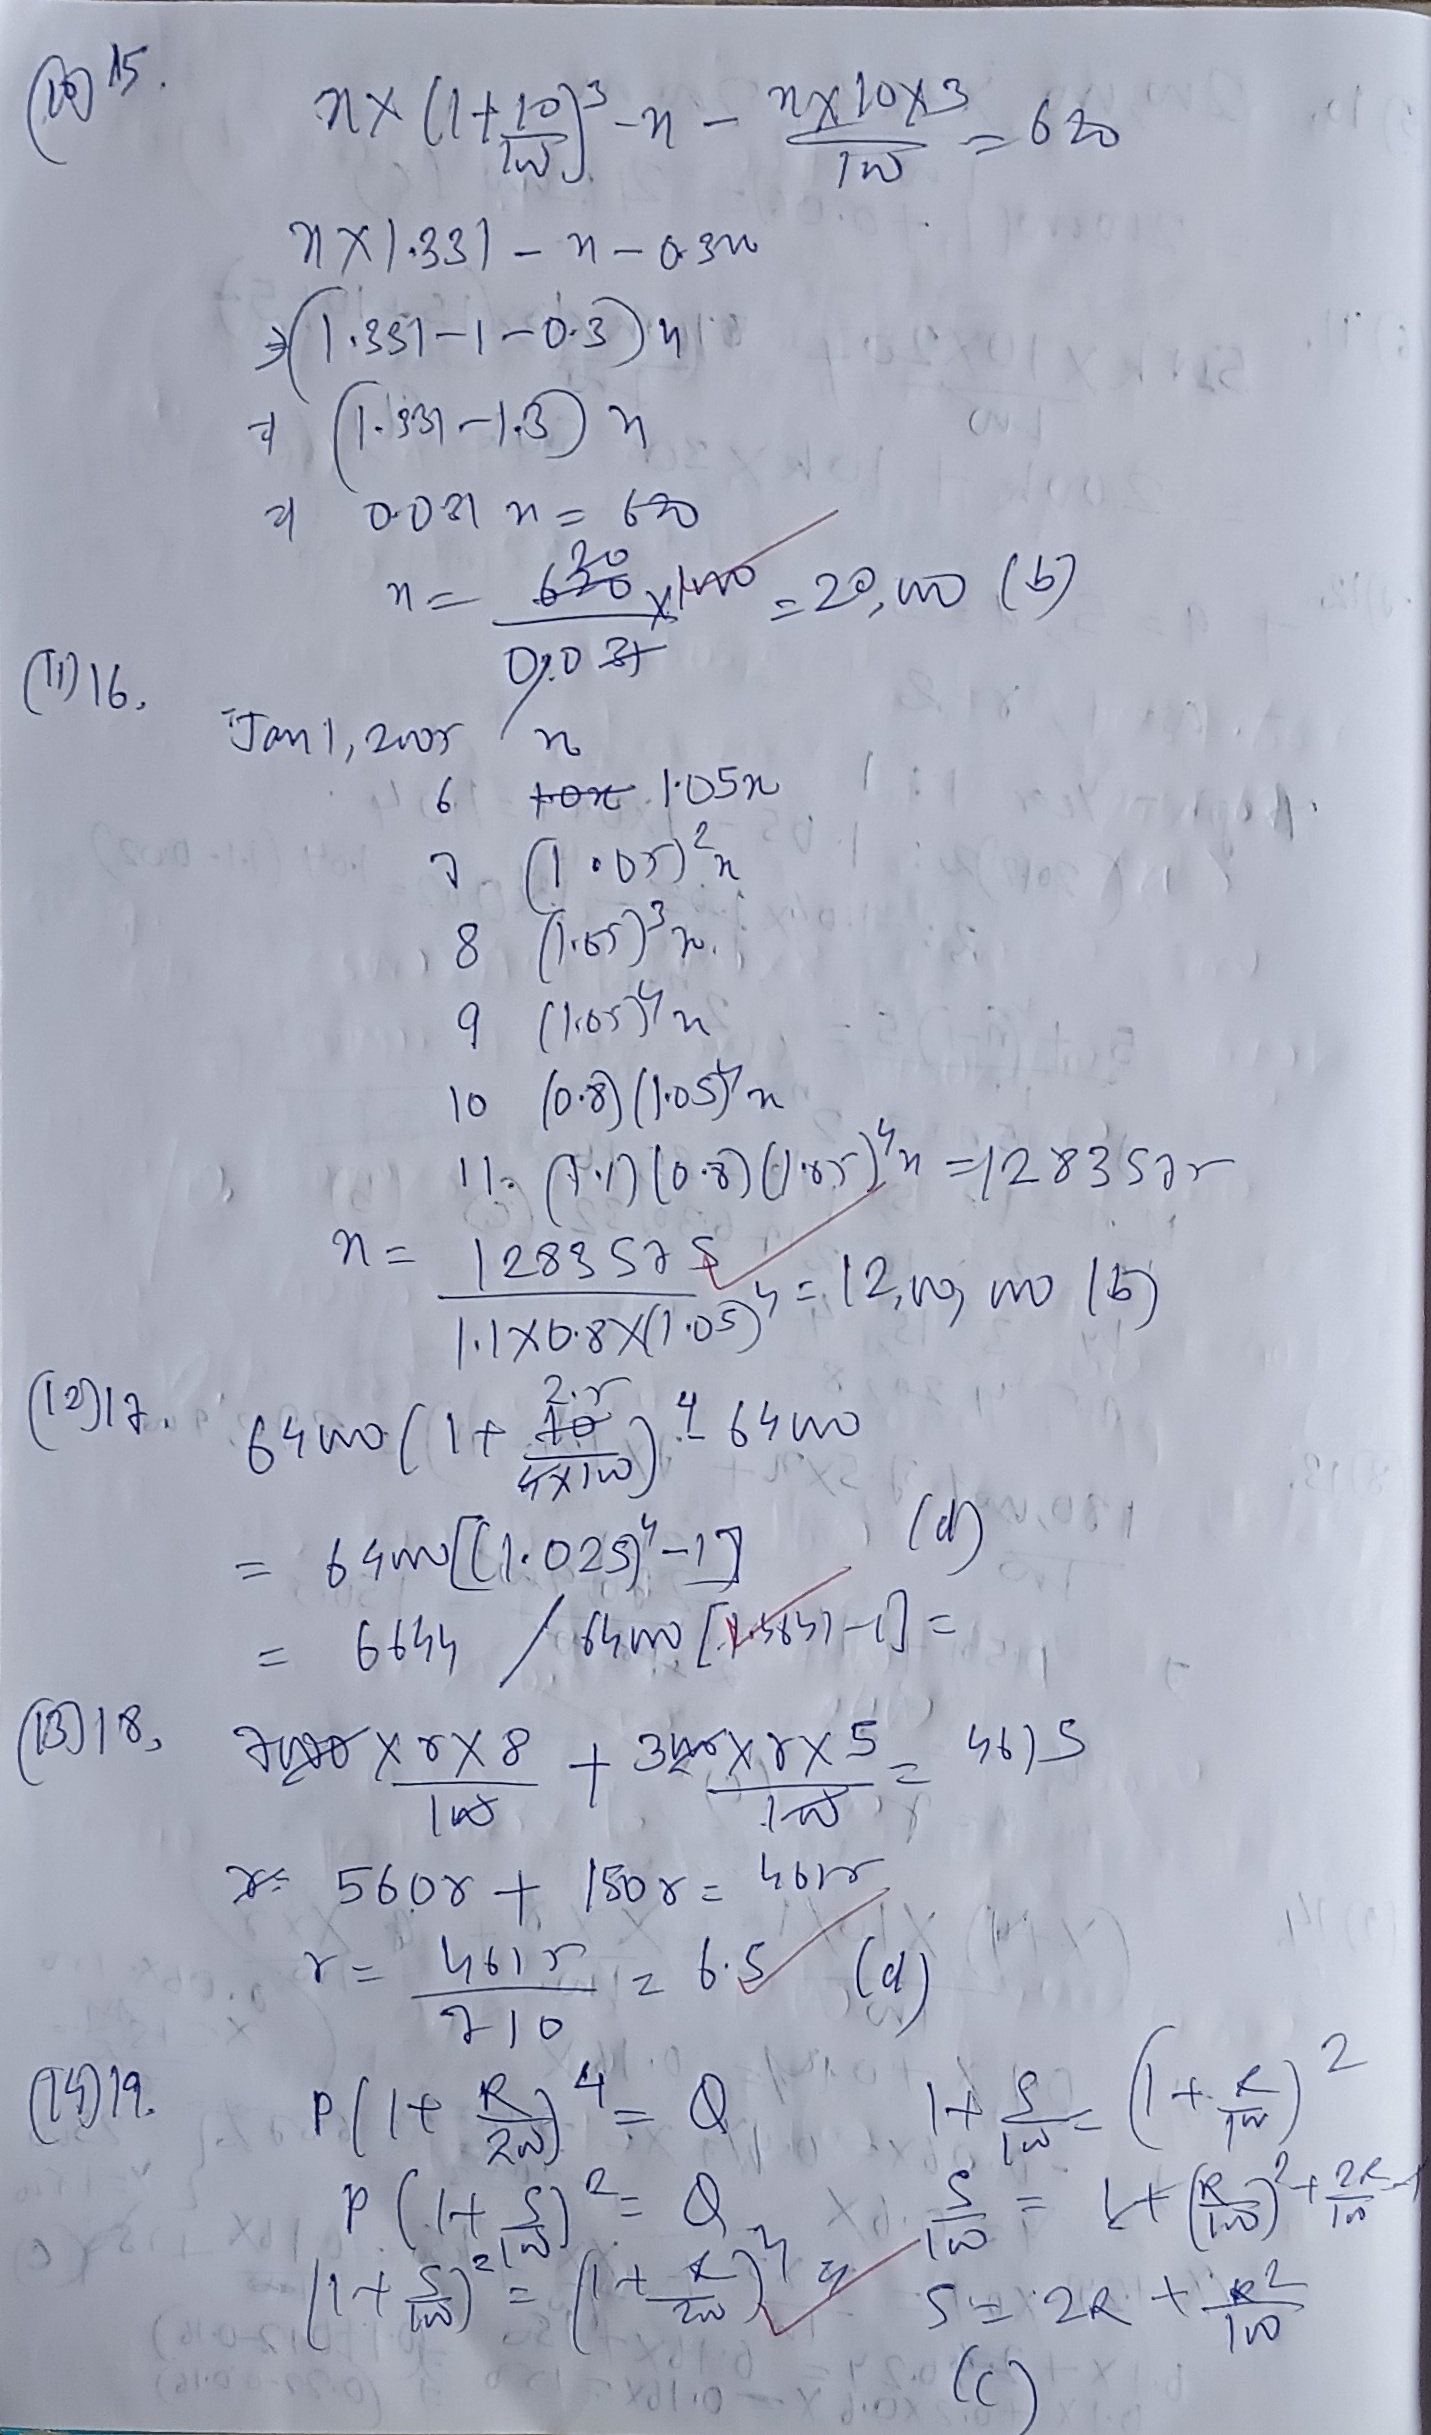 (10) 15.
x × (1 + 10/100)³ - x - x×10×3/100 = 620
x × 1.331 - x - 0.3x
⇒ (1.331 - 1 - 0.3) x
⇒ (1.331 - 1.3) x
⇒ 0.031 x = 620
x = 620 × 1000 / 0.031 = 20,000 (b)
20
(11) 16.
Jan 1, 2005 x
6 1.05x
7 (1.05)²x
8 (1.05)³x.
9 (1.05)⁴x
10 (0.8)(1.05)⁴x
11. (1.1)(0.8)(1.05)⁴x = 1283575
x = 1283575 / 1.1×0.8×(1.05)⁴ = 12,00,000 (b)
(12) 17.
64000 (1 + 2.5/100)⁴ - 64000
= 64000 [(1.025)⁴ - 1] (d)
= 6644 / 64000 [ - 1] =
(13) 18.
7000 × r × 8 / 100 + 3000 × r × 5 / 100 = 4615
560r + 150r = 4615
r = 4615/710 = 6.5 (d)
(14) 19.
P (1 + R/200)⁴ = Q 1 + S/100 = (1 + R/100)²
P (1 + S/100)² = Q S/100 = 1 + (R/100)² + 2R/100 - 1
(1 + S/100)² = (1 + R/200)⁴ S = 2R + R²/100
(c)